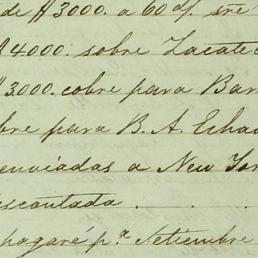 de $3000. a 60 d/. sre
$4.000. sobre Zacate
$3.000. cobre para Bar
bre para B. A. Echa
enviadas a New Yor
escontada . . . .
pagaré p.ª Setiembre